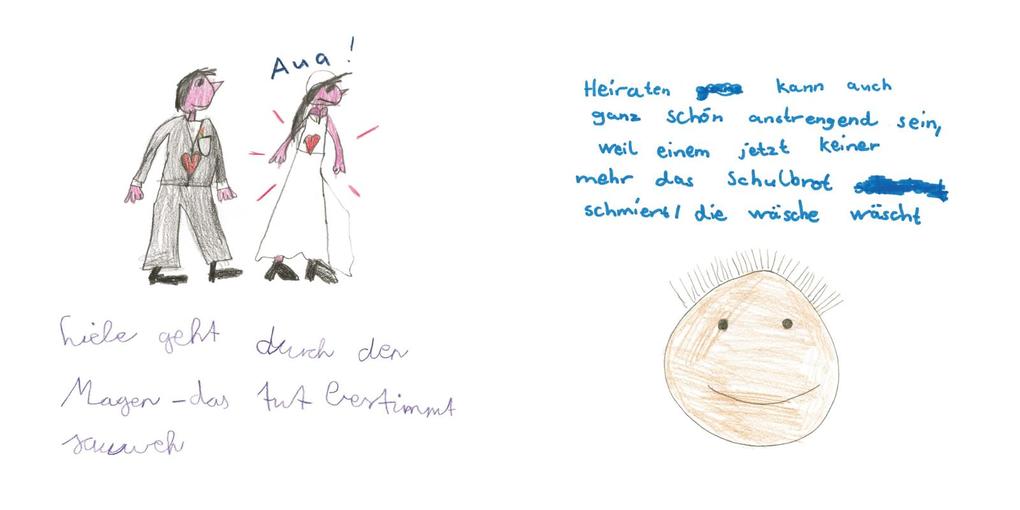 Aua!
Liebe geht durch den
Magen - das tut bestimmt
sauweh
Heiraten kann auch
ganz schön anstrengend sein,
weil einem jetzt keiner
mehr das Schulbrot
schmiert / die wäsche wäscht